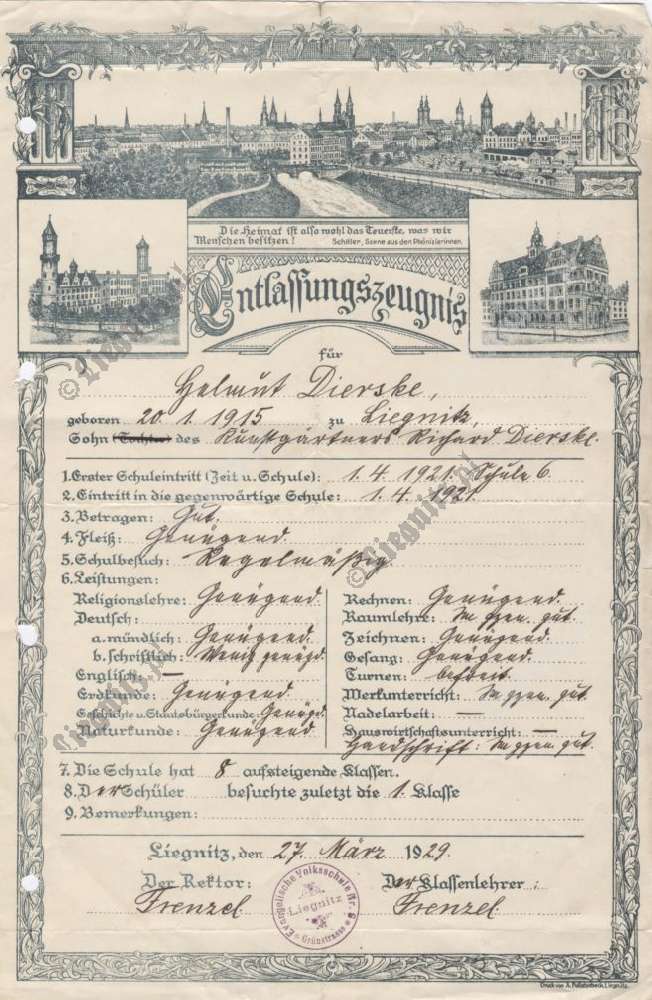 Die Heimat ist also wohl das Teuerste, was wir
Menschen besitzen! Schiller, Scene aus den Phönizierinnen.
Entlassungszeugnis
für
Helmut Dierske,
geboren 20. 1. 1915 zu Liegnitz,
Sohn (Tochter) des Kunstgärtners Richard Dierske.
1. Erster Schuleintritt (Zeit u. Schule): 1. 4. 1921. Schule 6.
2. Eintritt in die gegenwärtige Schule: 1. 4. 1921.
3. Betragen: Gut.
4. Fleiß: Genügend.
5. Schulbesuch: Regelmäßig.
6. Leistungen:
Religionslehre: Genügend.
Deutsch:
a. mündlich: Genügend.
b. schriftlich: Wenig genügd.
Englisch: —
Erdkunde: Genügend.
Geschichte u. Staatsbürgerkunde: Genügd.
Naturkunde: Genügend.
Rechnen: Genügend.
Raumlehre: Im gzen. gut.
Zeichnen: Genügend.
Gesang: Genügend.
Turnen: befreit.
Werkunterricht: Im gzen. gut.
Nadelarbeit: —
Hauswirtschaftsunterricht: —
Handschrift: Im gzen. gut.
7. Die Schule hat 8 aufsteigende Klassen.
8. Der Schüler besuchte zuletzt die 1. Klasse
9. Bemerkungen:
Liegnitz, den 27. März 1929.
Der Rektor: Der Klassenlehrer:
Frenzel Frenzel
Evangelische Volksschule Nr. 6
Liegnitz
Grünstrasse
© Liegnitz.pl
© Liegnitz.pl
Liegnitz.pl
Druck von A. Liegnitz.